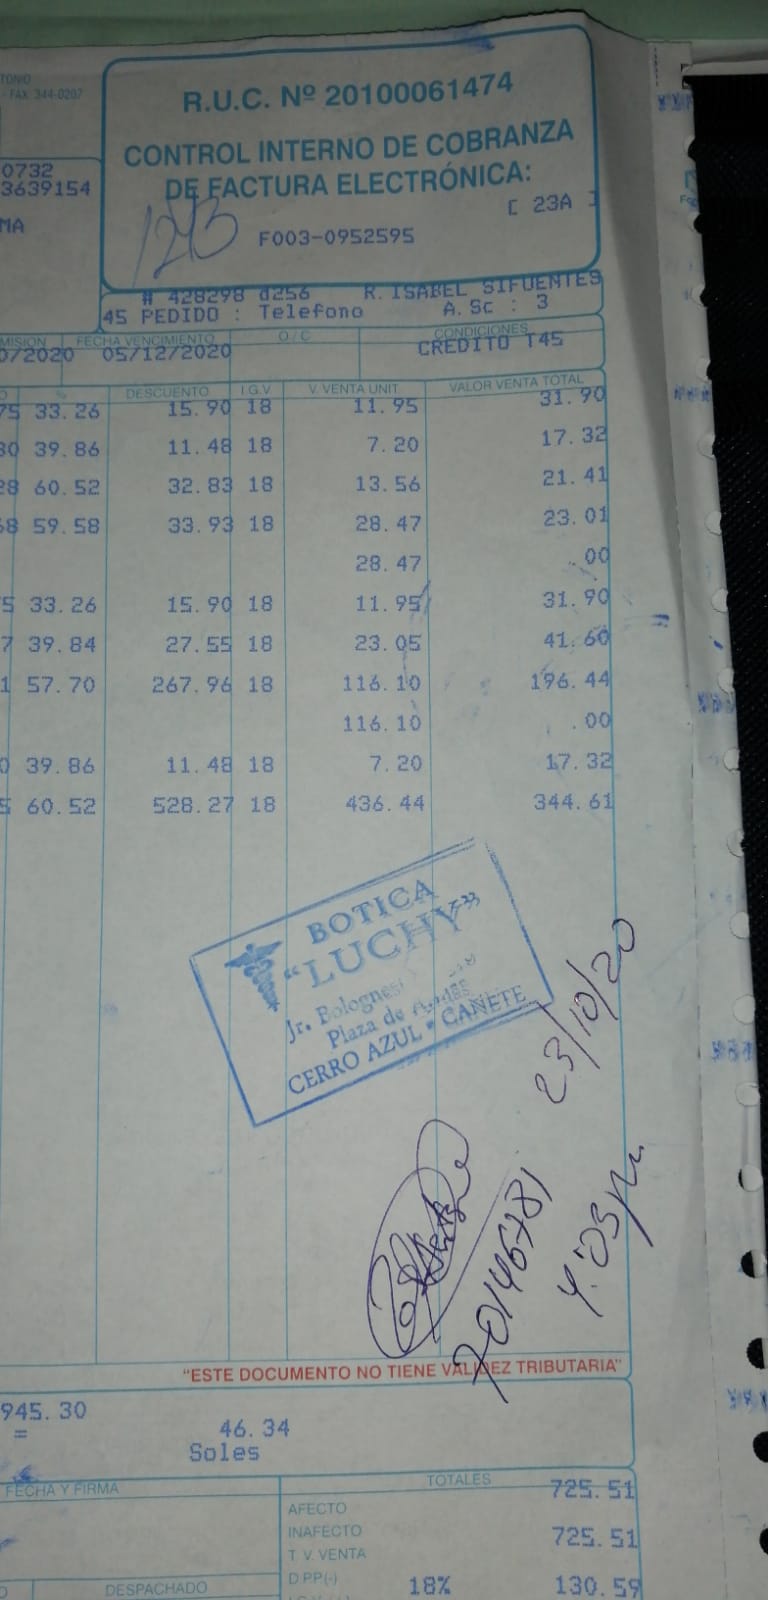 TONIO
- FAX 344-0207
R.U.C. Nº 20100061474
CONTROL INTERNO DE COBRANZA
DE FACTURA ELECTRÓNICA:
[ 23A ]
F003-0952595
1243
0732
3639154
MA
# 428298 d256 R. ISABEL SIFUENTES
45 PEDIDO : Telefono A. Sc : 3
MISION FECHA VENCIMIENTO O / C CONDICIONES
0/2020 05/12/2020 CREDITO T45
O % DESCUENTO I.G.V V. VENTA UNIT VALOR VENTA TOTAL
75 33.26 15.90 18 11.95 31.90
80 39.86 11.48 18 7.20 17.32
28 60.52 32.83 18 13.56 21.41
68 59.58 33.93 18 28.47 23.01
28.47 .00
5 33.26 15.90 18 11.95 31.90
7 39.84 27.55 18 23.05 41.60
1 57.70 267.96 18 116.10 196.44
116.10 .00
0 39.86 11.48 18 7.20 17.32
5 60.52 528.27 18 436.44 344.61
BOTICA
"LUCHY"
Jr. Bolognesi
Plaza de
CERRO AZUL • CAÑETE
23/10/20
70146781
4:03 pm
"ESTE DOCUMENTO NO TIENE VALIDEZ TRIBUTARIA"
945.30
= 46.34
Soles
FECHA Y FIRMA TOTALES
725.51
AFECTO
INAFECTO 725.51
T. V. VENTA
D.PP(-) 18% 130.59
O DESPACHADO